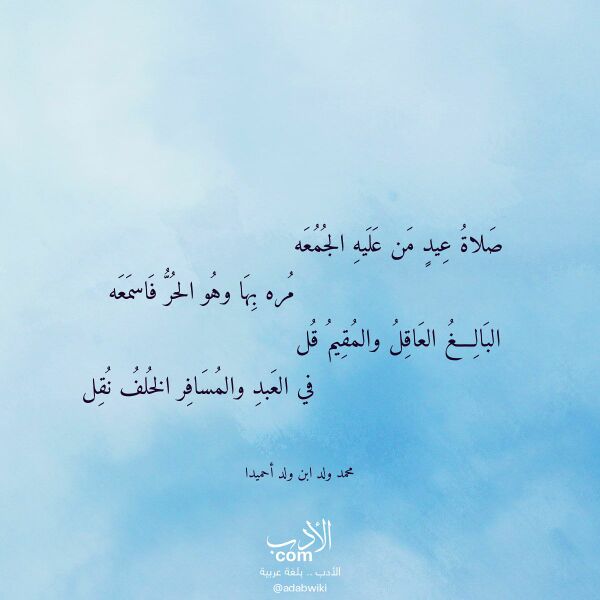 صَلاةُ عِيدٍ مَن عَلَيهِ الجُمُعَه
مُره بِهَا وهُو الحُرُّ فَاسمَعَه
البَالِـــغُ العَاقِلُ والمُقِيمُ قُل
في العَبدِ والمُسَافِر الخُلفُ نُقِل
محمد ولد ابن ولد أحميدا
الأدب
com
الأدب .. بلغة عربية
@adabwiki